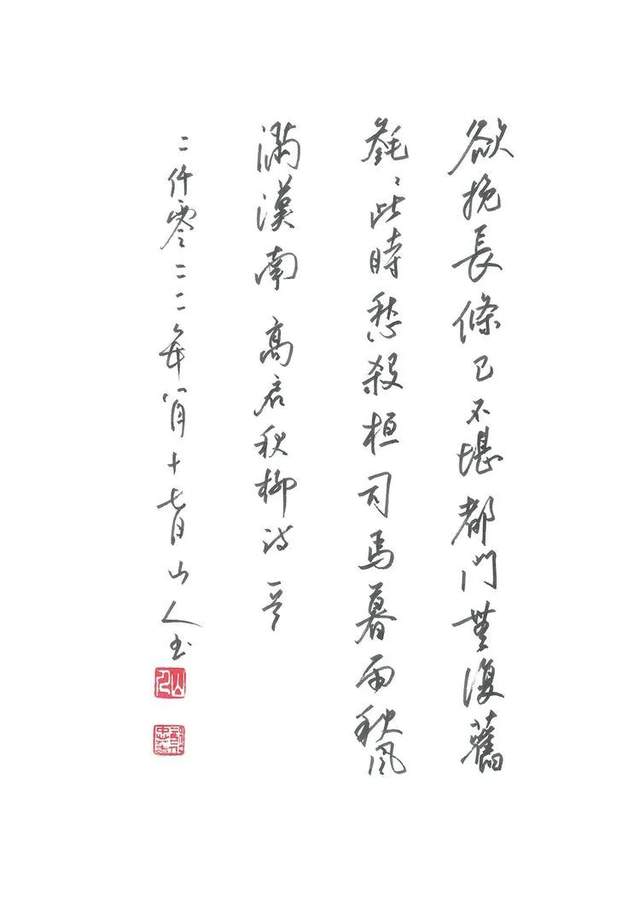 欲挽長條已不堪都門無復舊
毿〻此時愁殺桓司馬暮雨秋風
滿漢南 高启秋柳詩一首
二仟零二二年八月十七日山人书
山人